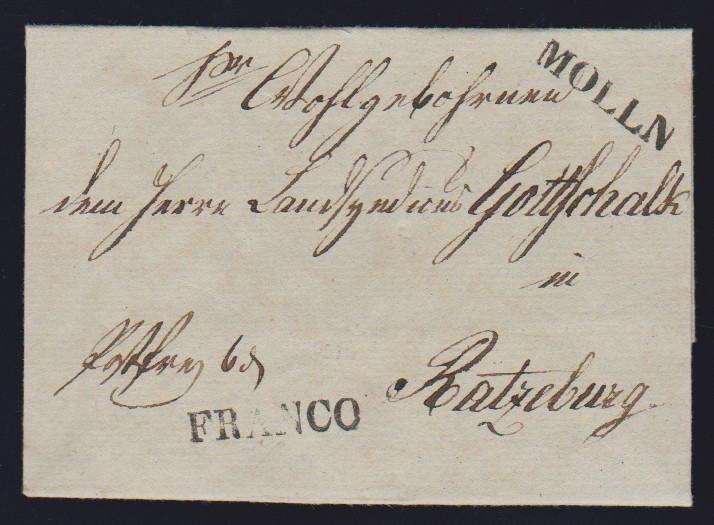 Sr Wohlgebohrnen
MOLLN
dem Herrn Landsyndicus Gottschalk
in
Postfrey 6
Ratzeburg
FRANCO